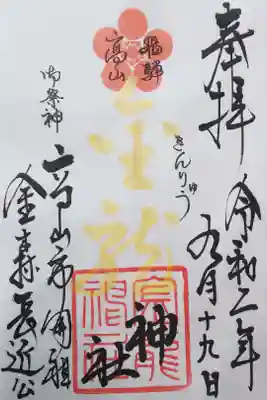 奉拝
令和二年
九月十九日
飛騨
高山
金龍
きんりゅう
神社
御祭神
高山市開祖
金森長近公